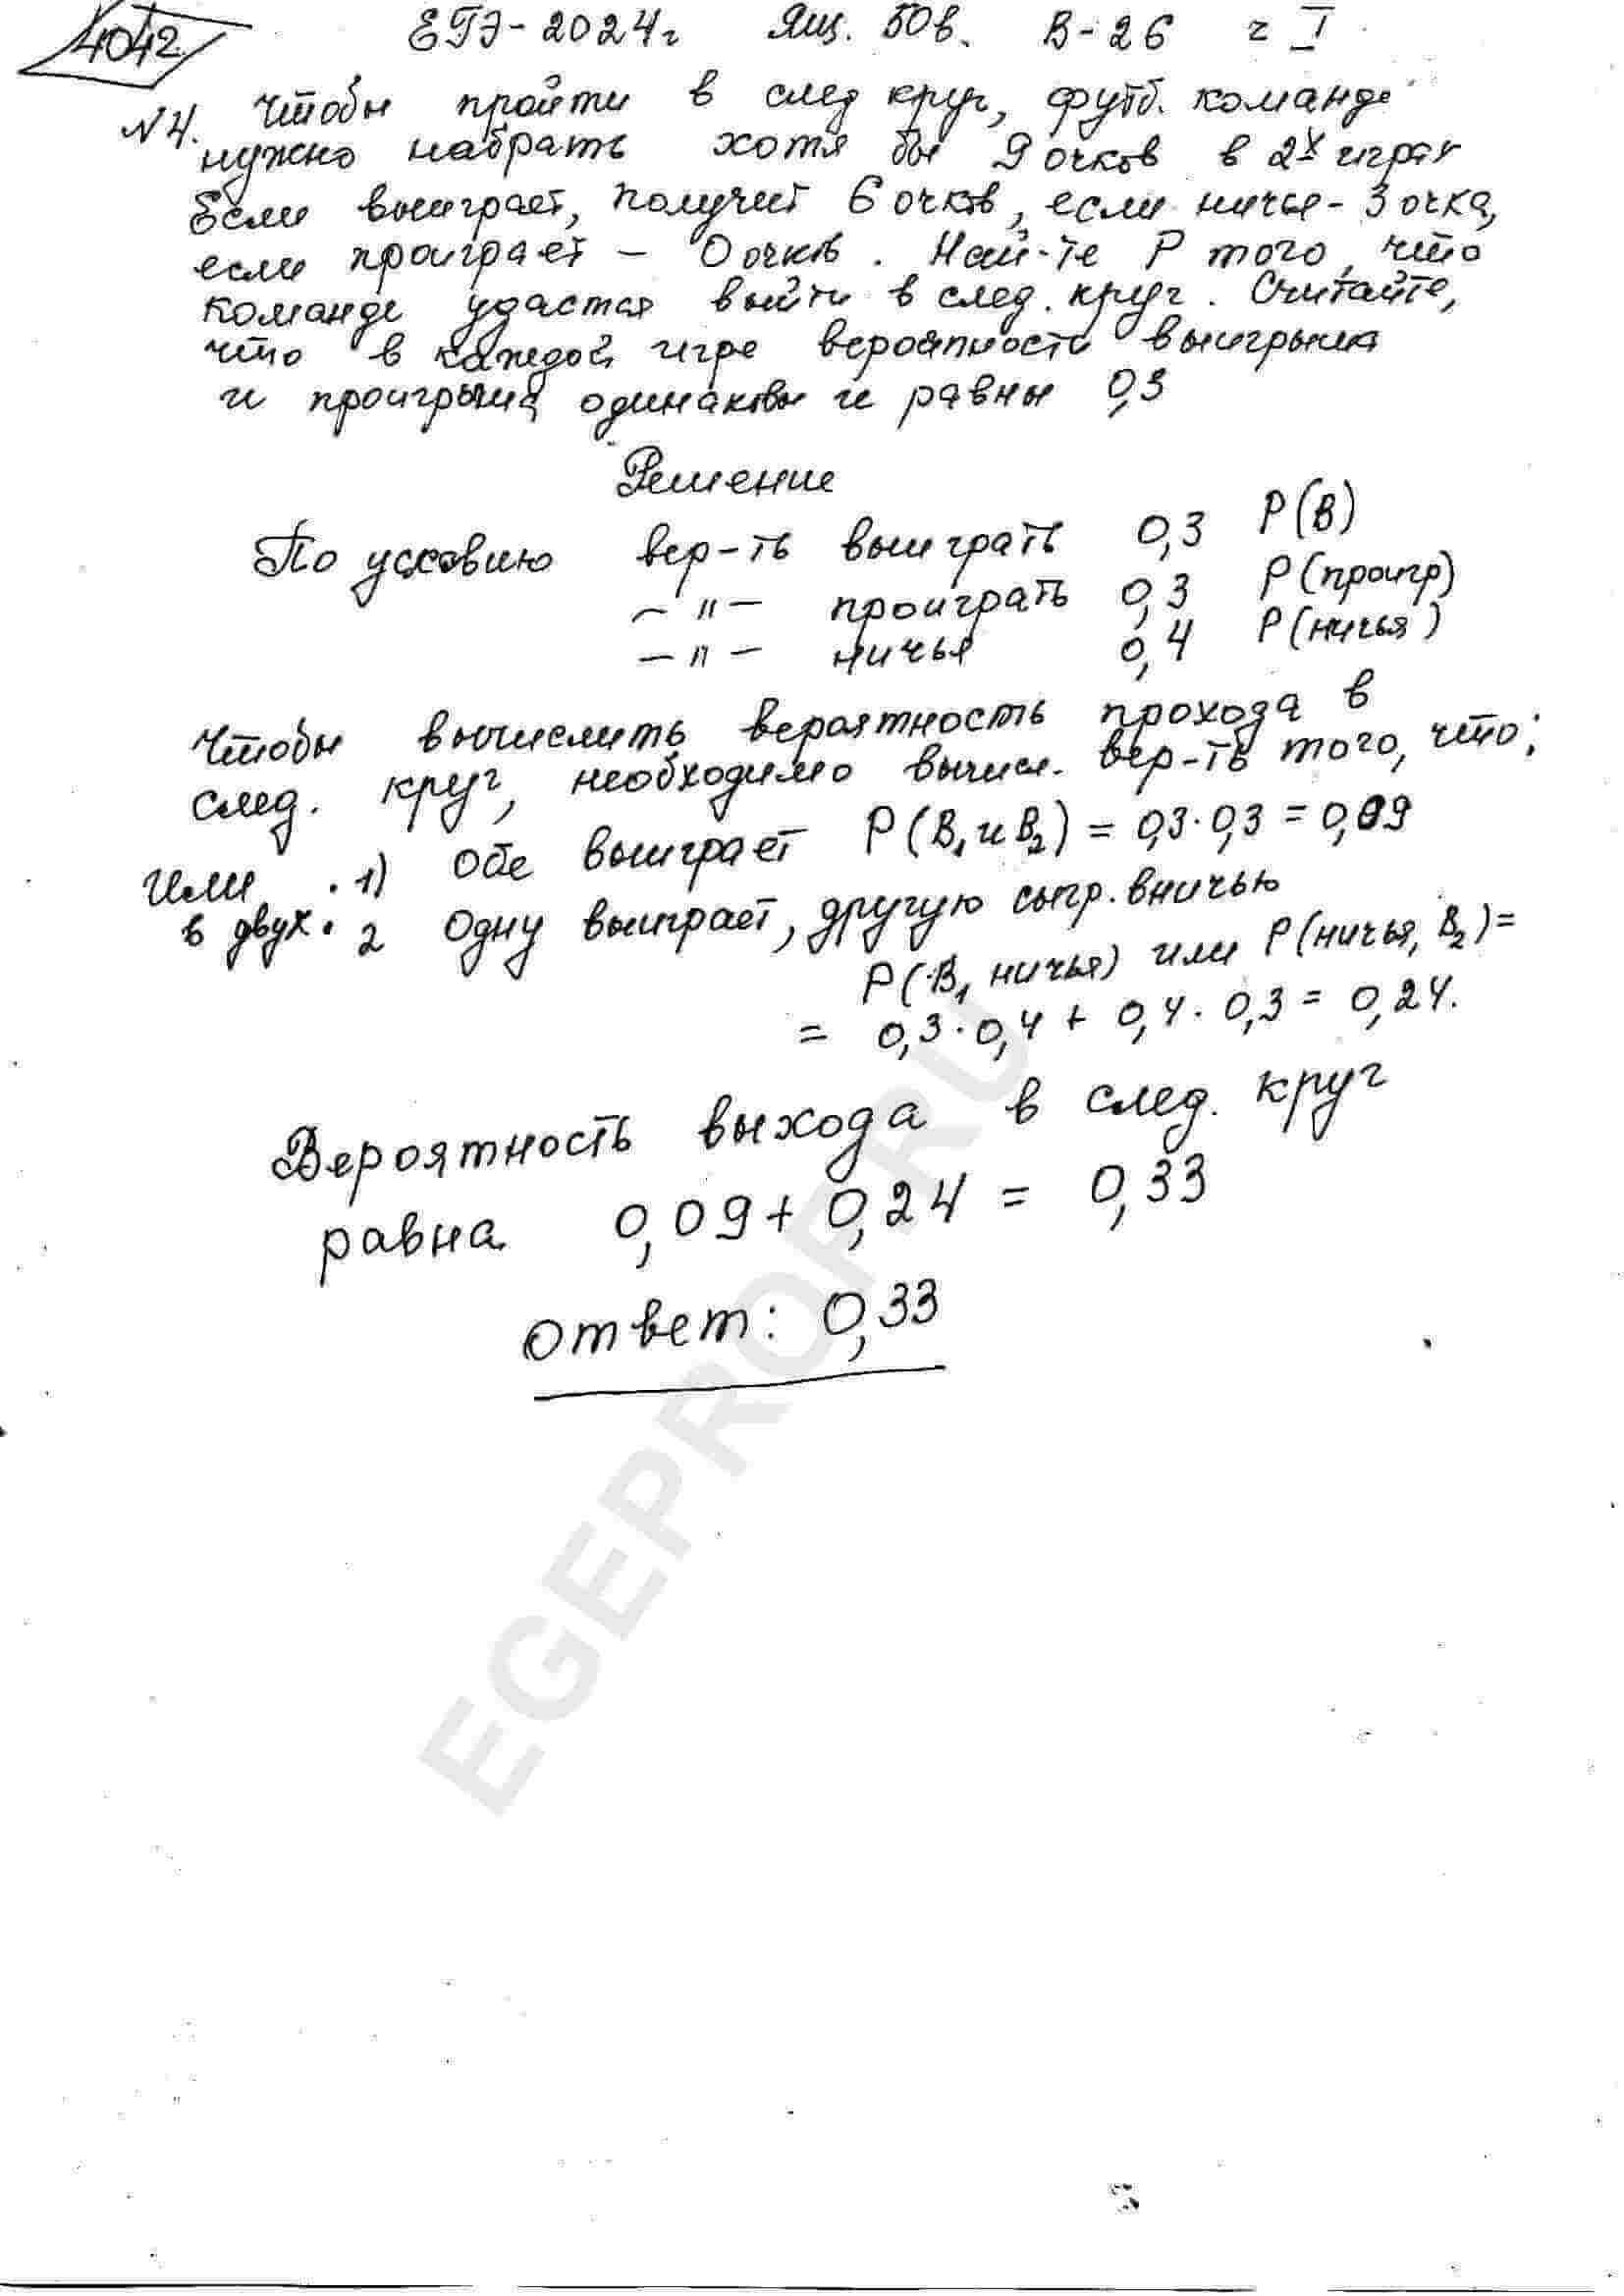 4042
ЕГЭ-2024г Ящ. 50в. В-26 ч I
N4. Чтобы пройти в след круг, футб. команде
нужно набрать хотя бы 9 очков в 2х играх
Если выиграет, получит 6 очков, если ничья - 3 очка,
если проиграет - 0 очков. Най-те P того, что
команде удастся выйти в след. круг. Считайте,
что в каждой игре вероятности выигрыша
и проигрыша одинаковы и равны 0,3
Решение
По условию вер-ть выиграть 0,3 P(В)
-"- проиграть 0,3 P(проигр)
-"- ничья 0,4 P(ничья)
Чтобы вычислить вероятность прохода в
след. круг, необходимо вычисл. вер-ть того, что:
Или 1) Обе выиграет P(В₁ и В₂) = 0,3·0,3 = 0,09
в двух 2 Одну выиграет, другую сыгр. вничью
P(В₁ ничья) или P(ничья, В₂) =
= 0,3·0,4 + 0,4·0,3 = 0,24.
Вероятность выхода в след. круг
равна 0,09 + 0,24 = 0,33
Ответ: 0,33
EGEPROF.RU